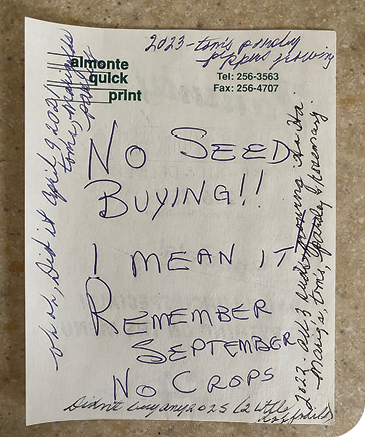 2023 - tom's parsley
peppers growing
almonte
quick
print
Tel: 256-3563
Fax: 256-4707
NO SEED
BUYING!!
I MEAN IT
REMEMBER
SEPTEMBER
NO CROPS
oh oh, Did it april 9 2021
tom's,
parsley
2022 - all 3 in
tom's, parsley & rosemary
Didn't buy any 2025 (2 little